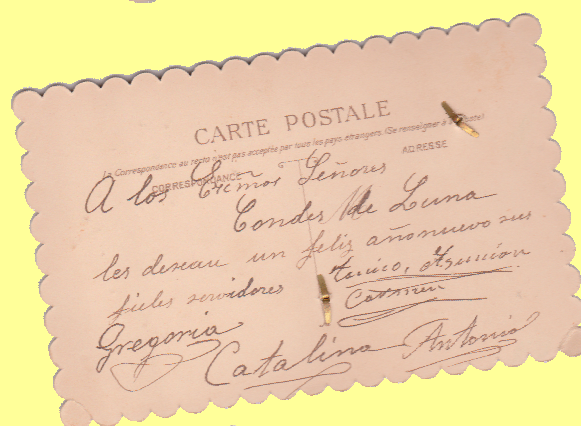 CARTE POSTALE
La Correspondance au recto n'est pas acceptée par tous les pays étrangers (Se renseigner à la Poste)
CORRESPONDANCE
ADRESSE
A los Excmos Señores
Condes de Luna
les desean un feliz año nuevo sus
fieles servidores
Asunción
Carmen
Gregoria
Catalina Antonio